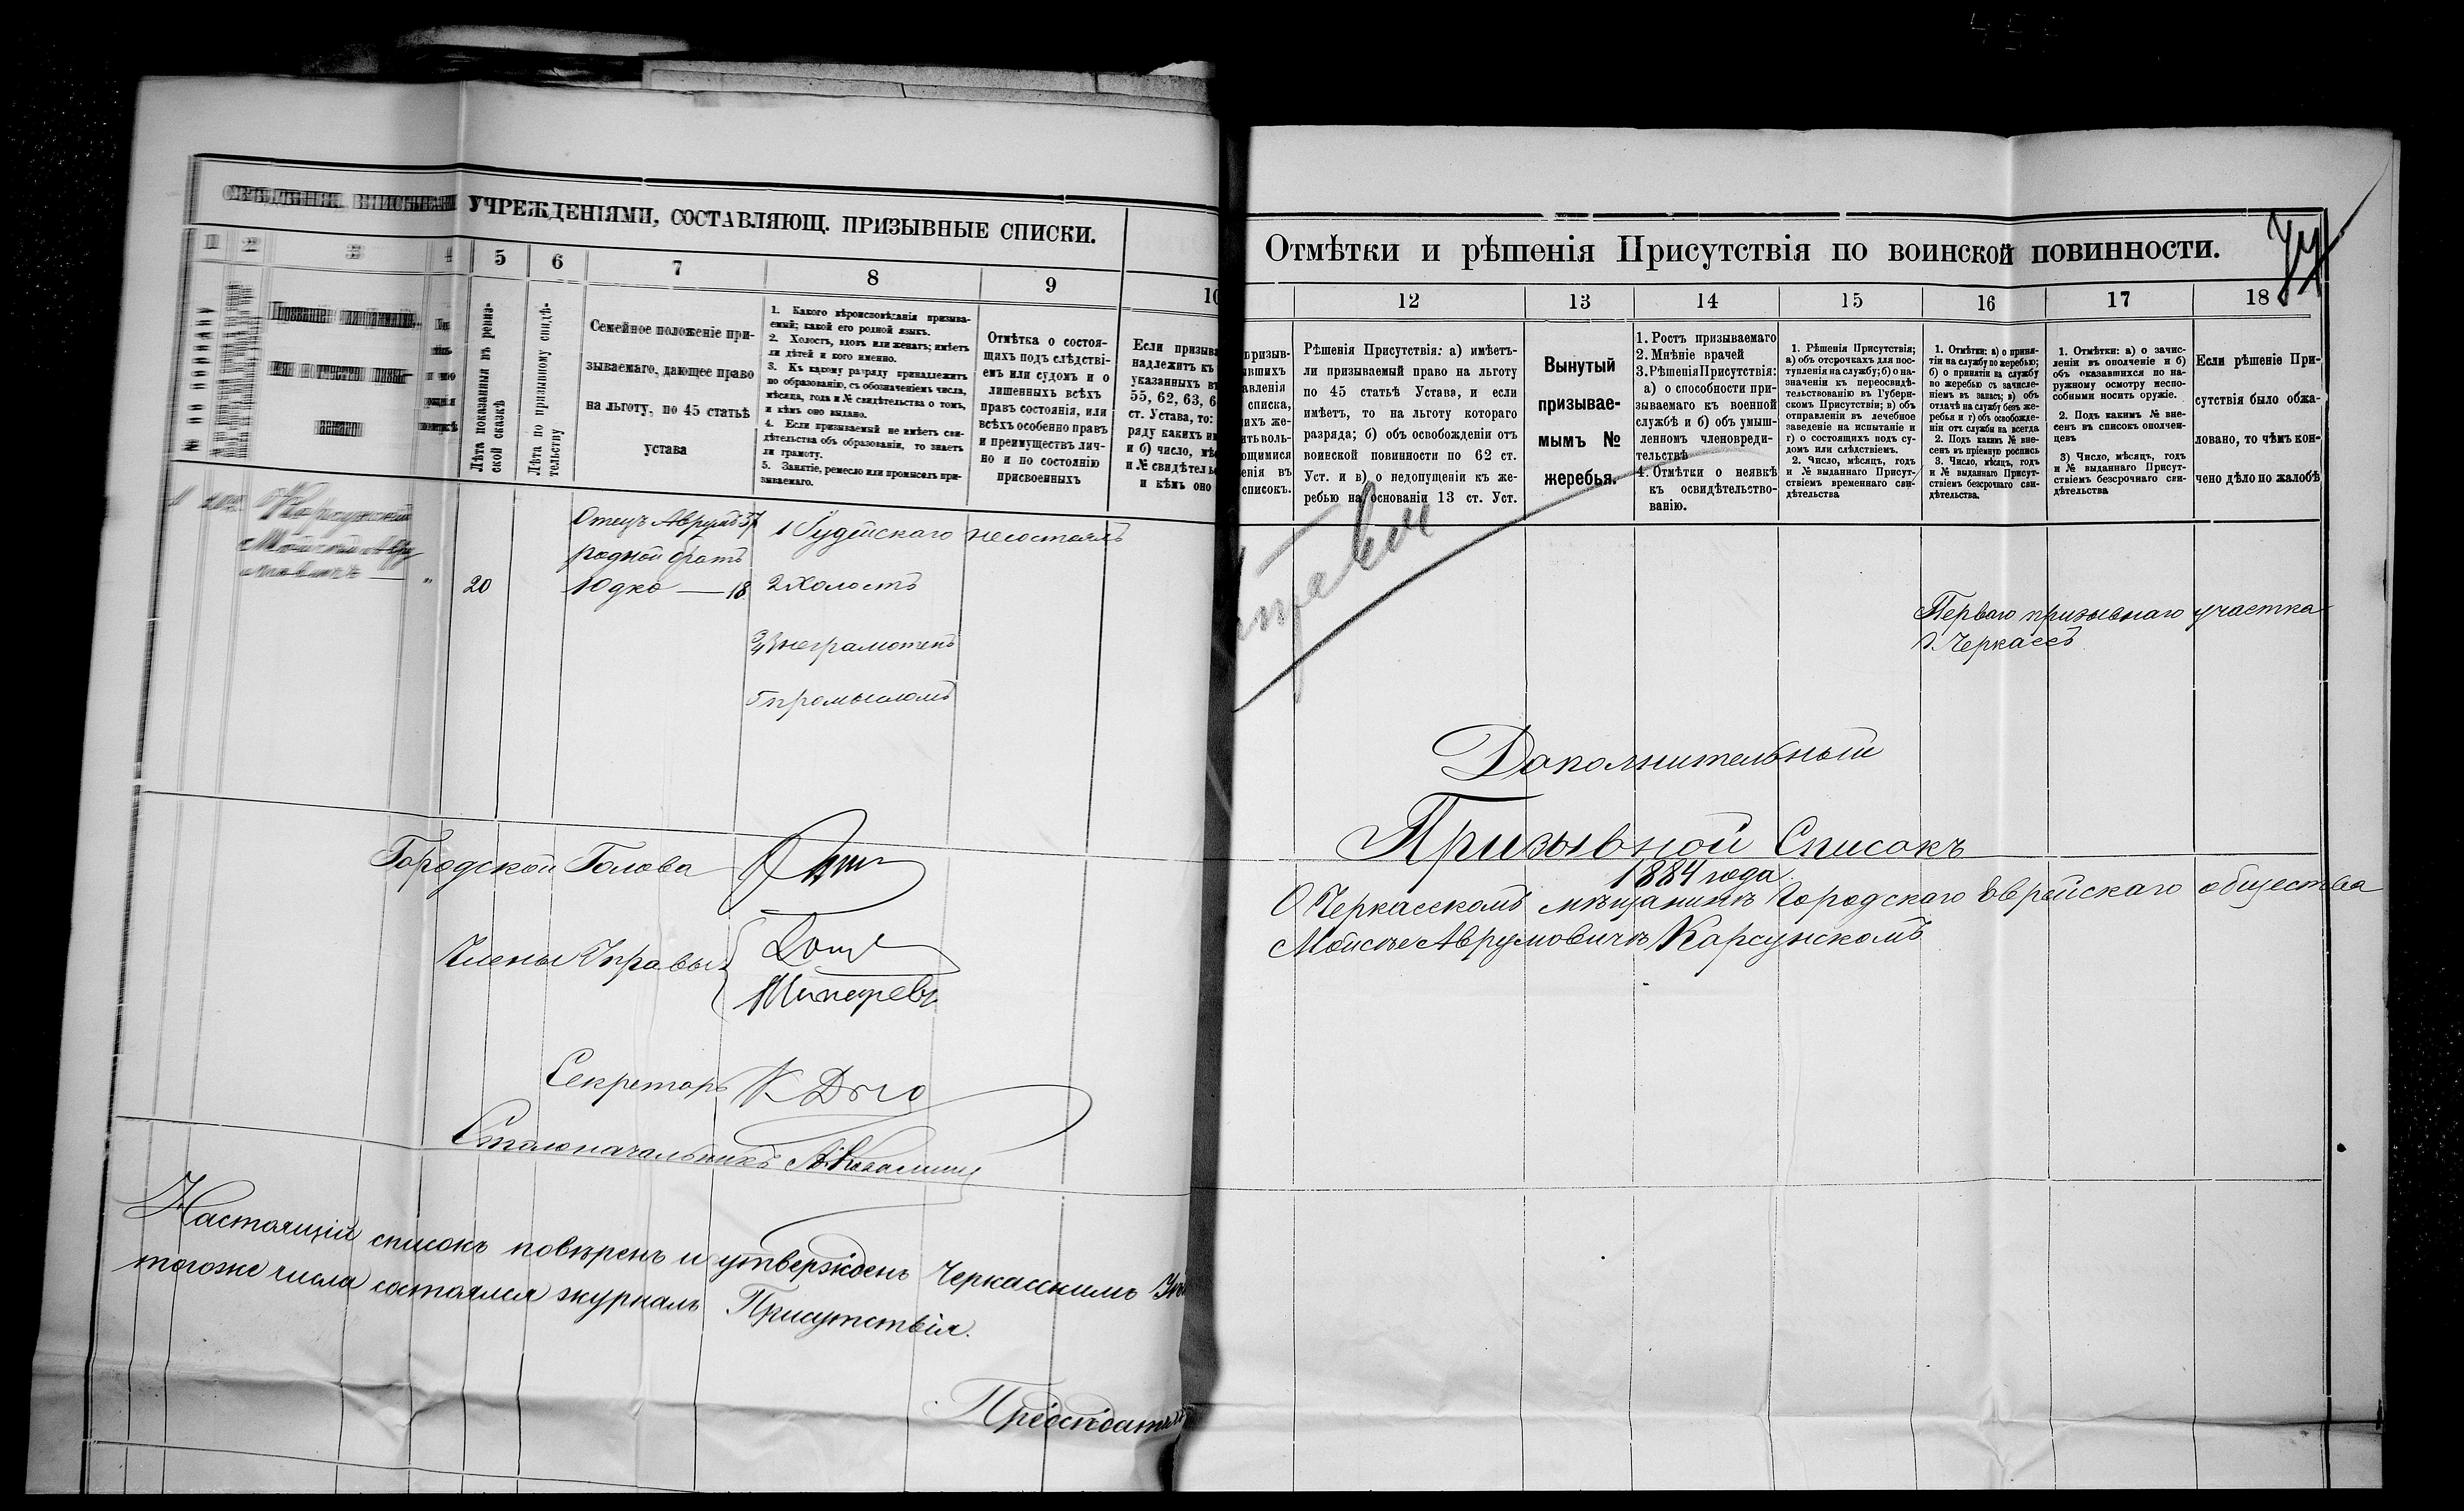 УЧРЕЖДЕНІЯМИ, СОСТАВЛЯЮЩ. ПРИЗЫВНЫЕ СПИСКИ.
5
6
7
8
9
10
Лѣта показанныя въ ревиз-
ской сказкѣ
Лѣта по призывному свидѣ-
тельству
Семейное положеніе при-
зываемаго, дающее право
на льготу, по 45 статьѣ
устава
1. Какого вѣроисповѣданія призыва-
емый; какой его родной языкъ.
2. Холостъ, вдовъ или женатъ; имѣетъ
ли дѣтей и кого именно.
3. Къ какому разряду принадлежитъ
по образованію, съ обозначеніемъ числа,
мѣсяца, года и № свидѣтельства о томъ,
и кѣмъ оно выдано.
4. Если призываемый не имѣетъ сви-
дѣтельства объ образованіи, то знаетъ
ли грамоту.
5. Занятіе, ремесло или промыселъ при-
зываемаго.
Отмѣтка о состоя-
щихъ подъ слѣдстві-
емъ или судомъ и о
лишенныхъ всѣхъ
правъ состоянія, или
всѣхъ особенно правъ
и преимуществъ лич-
но и по состоянію
присвоенныхъ
Если призыва
надлежитъ къ
указанныхъ въ
55, 62, 63, 6
ст. Устава, то:
ряду какихъ
и б) число, мѣс
и № свидѣтель
и кѣмъ оно
1
Корсунскій
Мойсей Авру
мовичъ
"
20
Отецъ Аврумъ 37
родной братъ
Юдко — 18
1 Іудейскаго
2 Холостъ
3/4 неграмотенъ
5 промысломъ
несостоялъ
Городской Голова
Члены Управы
Секретарь
Столоначальникъ
Настоящій списокъ повѣренъ и утвержденъ Черкасскимъ
тогоже числа состоялся журналъ Присутствія.
Предсѣдатель
Отмѣтки и рѣшенія Присутствія по воинской повинности.
12
13
14
15
16
17
18
Рѣшенія Присутствія: а) имѣетъ-
ли призываемый право на льготу
по 45 статьѣ Устава, и если
имѣетъ, то на льготу котораго
разряда; б) объ освобожденіи отъ
воинской повинности по 62 ст.
Уст. и в) о недопущеніи къ же-
ребью на основаніи 13 ст. Уст.
Вынутый
призывае-
мымъ №
жеребья.
1. Ростъ призываемаго
2. Мнѣніе врачей
3. Рѣшенія Присутствія:
а) о способности при-
зываемаго къ военной
службѣ и б) объ умыш-
ленномъ членовреди-
тельствѣ
4. Отмѣтки о неявкѣ
къ освидѣтельство-
ванію.
1. Рѣшенія Присутствія;
а) объ отсрочкахъ для пос-
тупленія на службу; б) о на-
значеніи къ переосвидѣ-
тельствованію въ Губерн-
скомъ Присутствіи; в) объ
отправленіи въ лечебное
заведеніе на испытаніе и
г) о состоящихъ подъ су-
домъ или слѣдствіемъ.
2. Число, мѣсяцъ, годъ
и № выданнаго Присут-
ствіемъ временнаго сви-
дѣтельства
1. Отмѣтки: а) о приня-
тіи на службу по жеребью;
б) о принятіи на службу
по жеребью съ зачисле-
ніемъ въ запасъ; в) объ
отдачѣ на службу безъ же-
ребья и г) объ освобожде-
ніи отъ службы на всегда
2. Подъ какимъ № вне-
сенъ въ пріемную роспись
3. Число, мѣсяцъ, годъ
и № выданнаго Присут-
ствіемъ безсрочнаго сви-
дѣтельства.
1. Отмѣтки: а) о зачис-
леніи въ ополченіе и б)
объ оказавшихся по на-
ружному осмотру неспо-
собными носить оружіе.
2. Подъ какимъ № вне-
сенъ въ списокъ ополчен-
цевъ
3) Число, мѣсяцъ, годъ
и № выданнаго Присут-
ствіемъ безсрочнаго сви-
дѣтельства
Если рѣшеніе При-
сутствія было обжа-
ловано, то чѣмъ кон-
чено дѣло по жалобѣ
Перваго призывнаго участка
г. Черкассъ
Дополнительный
Призывной Списокъ
1884 года.
О Черкасскомъ мѣщанинѣ Городского Еврейскаго общества
Мойсѣе Аврумовичѣ Корсунскомъ